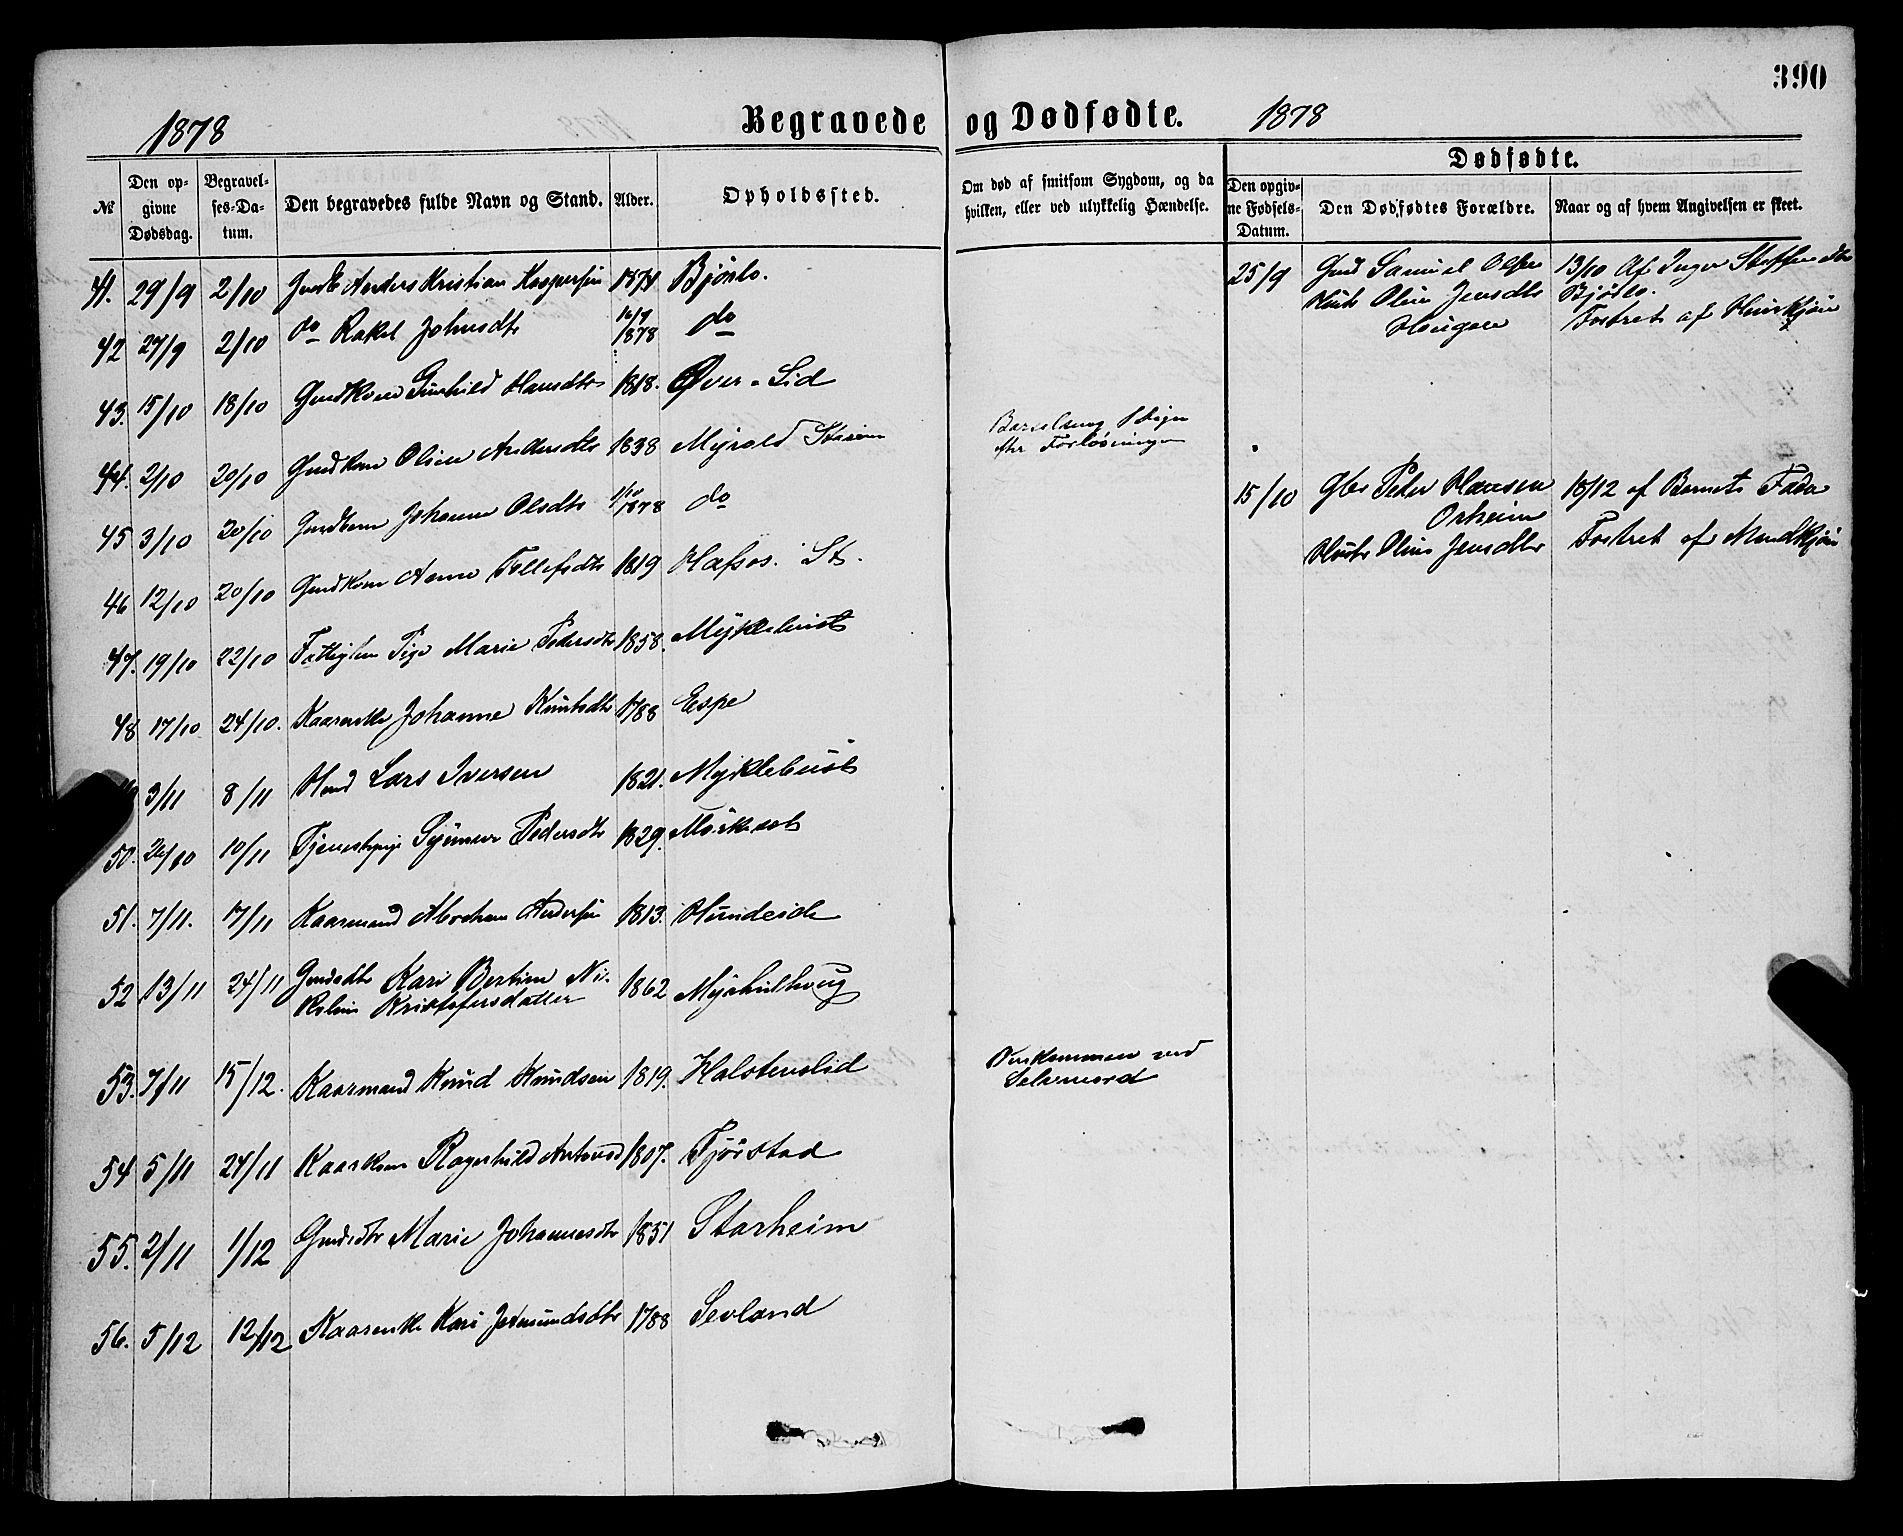 390
1878 Begravede og Dødfødte. 1878
Dødfødte.
№ Den opgivne Dødsdag. Begravelses-Datum. Den begravedes fulde Navn og Stand. Alder. Opholdssted. Om død af smitsom Sygdom, og da hvilken, eller ved ulykkelig Hændelse. Den opgivne Fødsels-Datum. Den Dødfødtes Forældre. Naar og af hvem Angivelsen er skeet.
41. 29/9 2/10 Anders Kristian Kaspersen 1874 Bjørlo.
42 27/9 2/10 do Rakel Johnsdtr 1878 do
43. 15/10 18/10 Gmdkone Gunhild Hansdtr 1818. Øvre-Lid
44. 2/10 20/10 Gmdkone Oline Andersdtr 1838 Myrold
Barselseng
efter Forløsningen
45 3/10 20/10 Gmdbarn Johanne Olsdtr 1/10 1878 do
46 12/10 20/10 Gmdkone Anne Tollefsdtr 1819 Hafsos. St.
47. 19/10 22/10 Pige Marie Pedersdtr 1858. Myklebust
48 17/10 24/10. Kaarenke Johanne Knutsdtr 1788 Espe
3/11 8/11 Lars Iversen 1821. Myklebust
50. 26/10 10/11 Tjenestepige Pedersdtr 1829. Mørkesæt
51. 7/11. 17/11 Kaarmand Abraham Andersen 1813. Hundeide
52 13/11 24/11 Gmdsdtr Kari Bertine Ni-
koline Kristofersdatter 1862 Myrhulthoug
53. 7/11 15/12. Kaarmand Knud Knudsen 1819. Halstenslid
Omkommen ved
Selvmord
54 5/11 24/11 Kaarkone Ragnhild 1807. Fjørstad
55. 2/11 1/12 Gmdsdtr Marie Johannesdtr 1851 Starheim
56. 5/12 12/12 Kaarenke Kari Jetmundsdtr 1788 Sevland
25/9 Gmd Samuel Olsen
Hustr Oline Jensdtr
Haugen
13/10 Af Inger Steffensdtr
Bjørlo.
Fostret af
15/10 Gbr Peter Hansen
Orheim
Hustr Oline Jensdtr
18/12 af Barnets Fader
Fostret af Mandkjøn